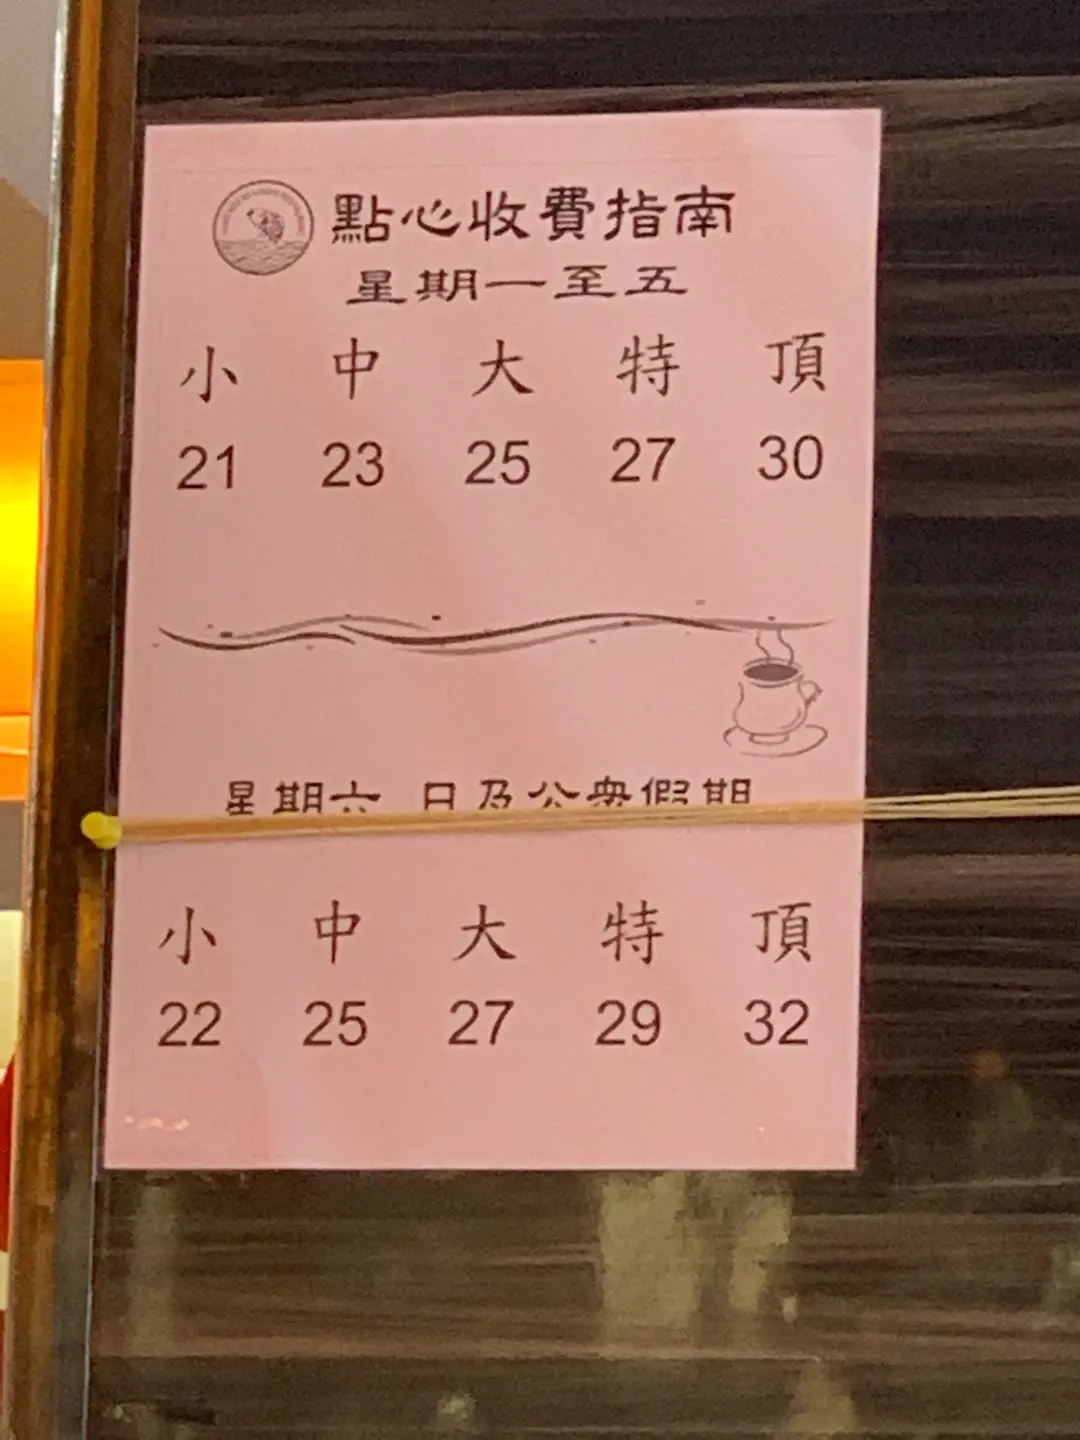 點心收費指南
星期一至五
小 中 大 特 頂
21 23 25 27 30
星期六 日及公眾假期
小 中 大 特 頂
22 25 27 29 32